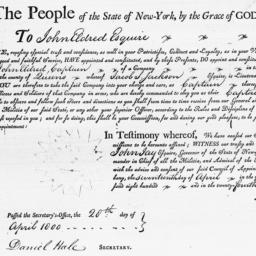 The People of the State of New-York, by the Grace of GOD
To John Aldred Esquire
E, reposing special trust and confidence, as well in your Patriotism, Conduct and Loyalty, as in your V
and faithful Service, HAVE appointed and constituted, and by these Presents, DO appoint and constitute
John Aldred, Captain of a Company
ty of Queens whereof Jackson Esquire, is Lieutenant
YOU are therefore to take the said Company into your charge and care, as Captain
and Soldiers of that Company in arms, who are hereby commanded to obey you as their Captain
to observe and follow such Orders and directions as you shall from time to time receive from our General
Militia of our said State, or any other your superior Officer, according to the Rules and Discipline of
in you; and for so doing, this shall be your Commission, for and during our good pleasure, to be
appointment:
In Testimony whereof, We have caused our
missions to be hereunto affixed: WITNESS our trusty and
John Jay Esquire, Governor of the State of New
mander in Chief of all the Militia, and Admiral of the
with the advice and consent of our said Council of Appoint
bany, the Seventeenth day of April
year eight hundred and in the twenty fourth
Passed the Secretary's-Office, the 20th day of
April 1800
Daniel Hale SECRETARY.